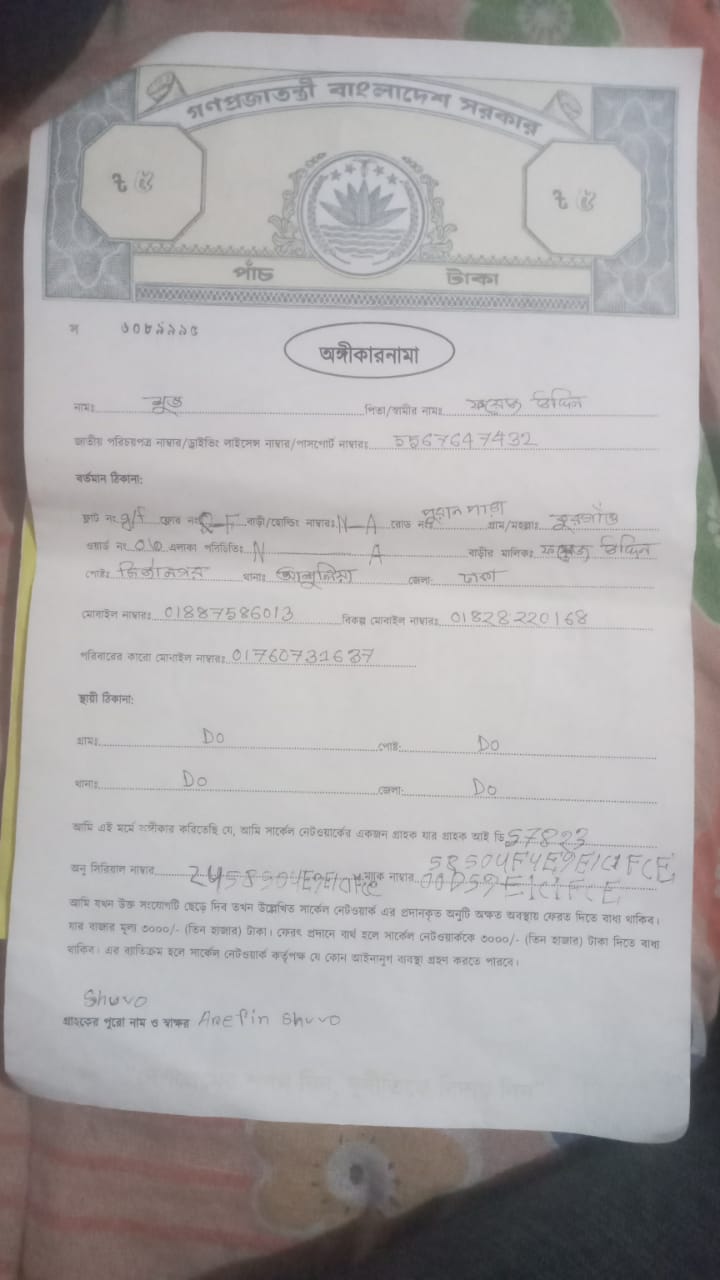 গণপ্রজাতন্ত্রী বাংলাদেশ সরকার
পাঁচ টাকা
অঙ্গীকারনামা
নামঃ শুভ পিতা/স্বামীর নামঃ উদ্দিন
জাতীয় পরিচয়পত্র নাম্বার/ড্রাইভিং লাইসেন্স নাম্বার/পাসপোর্ট নাম্বারঃ 5567647432
বর্তমান ঠিকানা:
ফ্লাট নং g/f ফ্লোর নং G-F বাড়ী/হোল্ডিং নাম্বারঃ N-A রোড নং পুরান পাড়া গ্রাম/মহল্লাঃ
ওয়ার্ড নং এলাকা পরিচিতিঃ N A বাড়ীর মালিকঃ উদ্দিন
পোষ্টঃ থানাঃ আশুলিয়া জেলা: ঢাকা
মোবাইল নাম্বারঃ 01887586013 বিকল্প মোবাইল নাম্বারঃ 01828220168
পরিবারের কারো মোবাইল নাম্বারঃ 01760731637
স্থায়ী ঠিকানা:
গ্রামঃ Do পোষ্ট: Do
থানাঃ Do জেলা: Do
আমি এই মর্মে অঙ্গীকার করিতেছি যে, আমি সার্কেল নেটওয়ার্কের একজন গ্রাহক যার গ্রাহক আই ডি 57823
58504F4E9E1C1FCE
অনু সিরিয়াল নাম্বার ম্যাক নাম্বার 00D59E1C1FCE
আমি যখন উক্ত সংযোগটি ছেড়ে দিব তখন উল্লেখিত সার্কেল নেটওয়ার্ক এর প্রদানকৃত অনুটি অক্ষত অবস্থায় ফেরত দিতে বাধ্য থাকিব।
যার বাজার মূল্য ৩০০০/- (তিন হাজার) টাকা। ফেরৎ প্রদানে ব্যর্থ হলে সার্কেল নেটওয়ার্ককে ৩০০০/- (তিন হাজার) টাকা দিতে বাধ্য
থাকিব। এর ব্যতিক্রম হলে সার্কেল নেটওয়ার্ক কর্তৃপক্ষ যে কোন আইনানুগ ব্যবস্থা গ্রহন করতে পারবে।
Shuvo
গ্রাহকের পুরো নাম ও স্বাক্ষর Arefin Shuvo